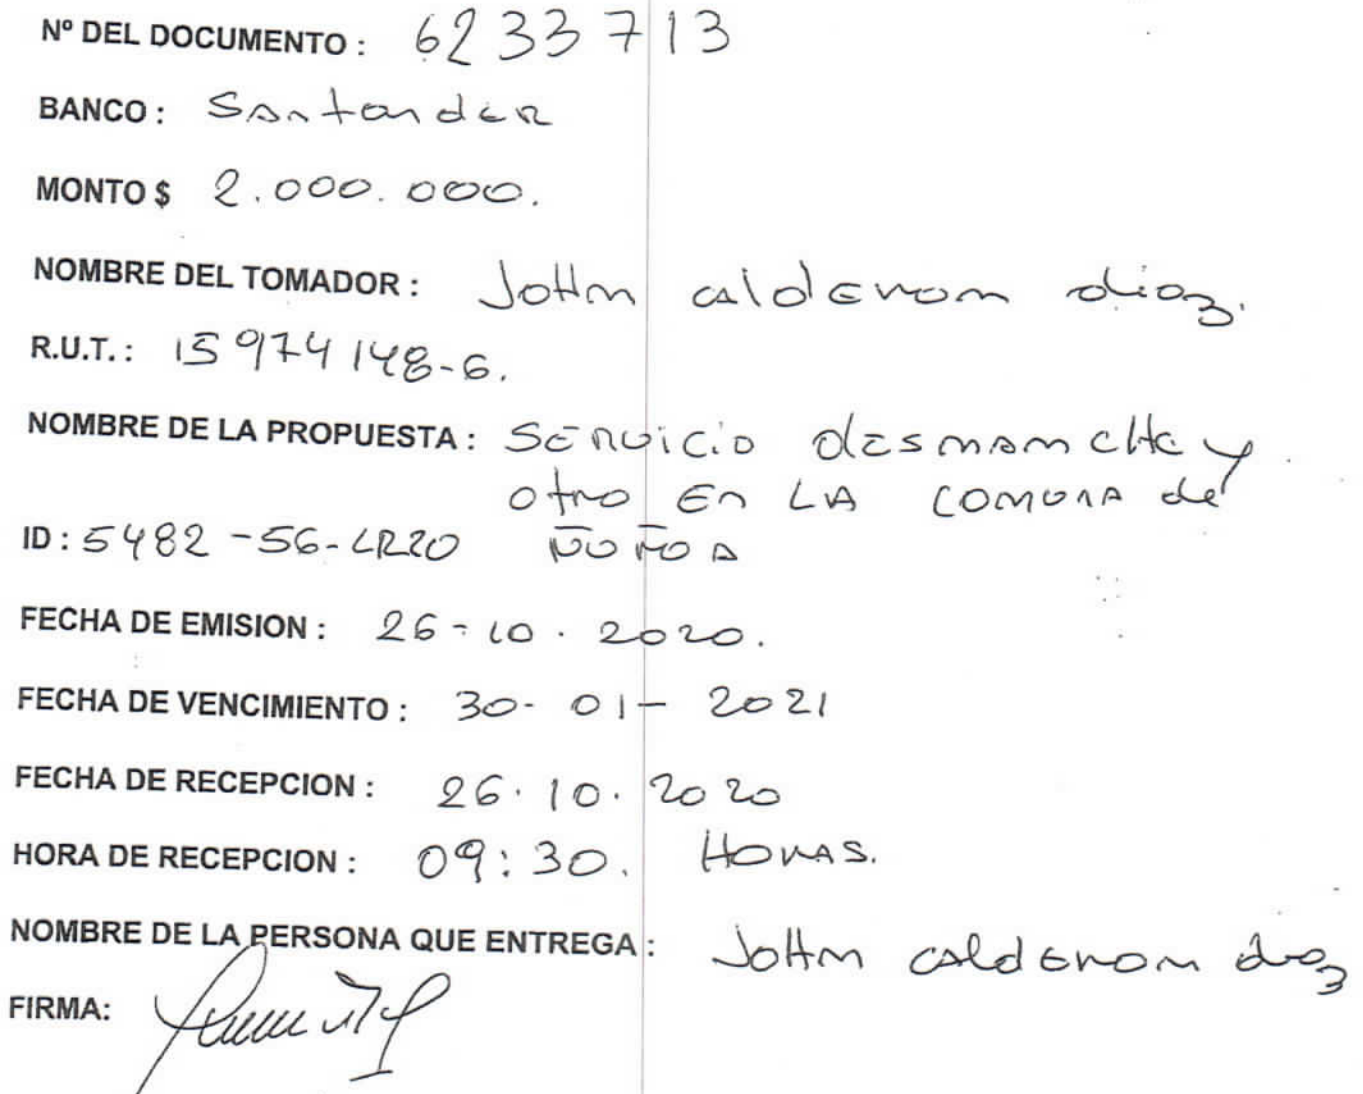 Nº DEL DOCUMENTO : 6233713
BANCO : Santander
MONTO $ 2.000.000.
NOMBRE DEL TOMADOR : JoHn calderon diaz.
R.U.T. : 15974148-6.
NOMBRE DE LA PROPUESTA : SERVICIO desmancHe y
otro En LA comuna de
ID : 5482-56-LR20 ÑUÑOA
FECHA DE EMISION : 26-10.2020.
FECHA DE VENCIMIENTO : 30-01-2021
FECHA DE RECEPCION : 26.10.2020
HORA DE RECEPCION : 09:30. HORAS.
NOMBRE DE LA PERSONA QUE ENTREGA : JoHn calderon diaz
FIRMA: